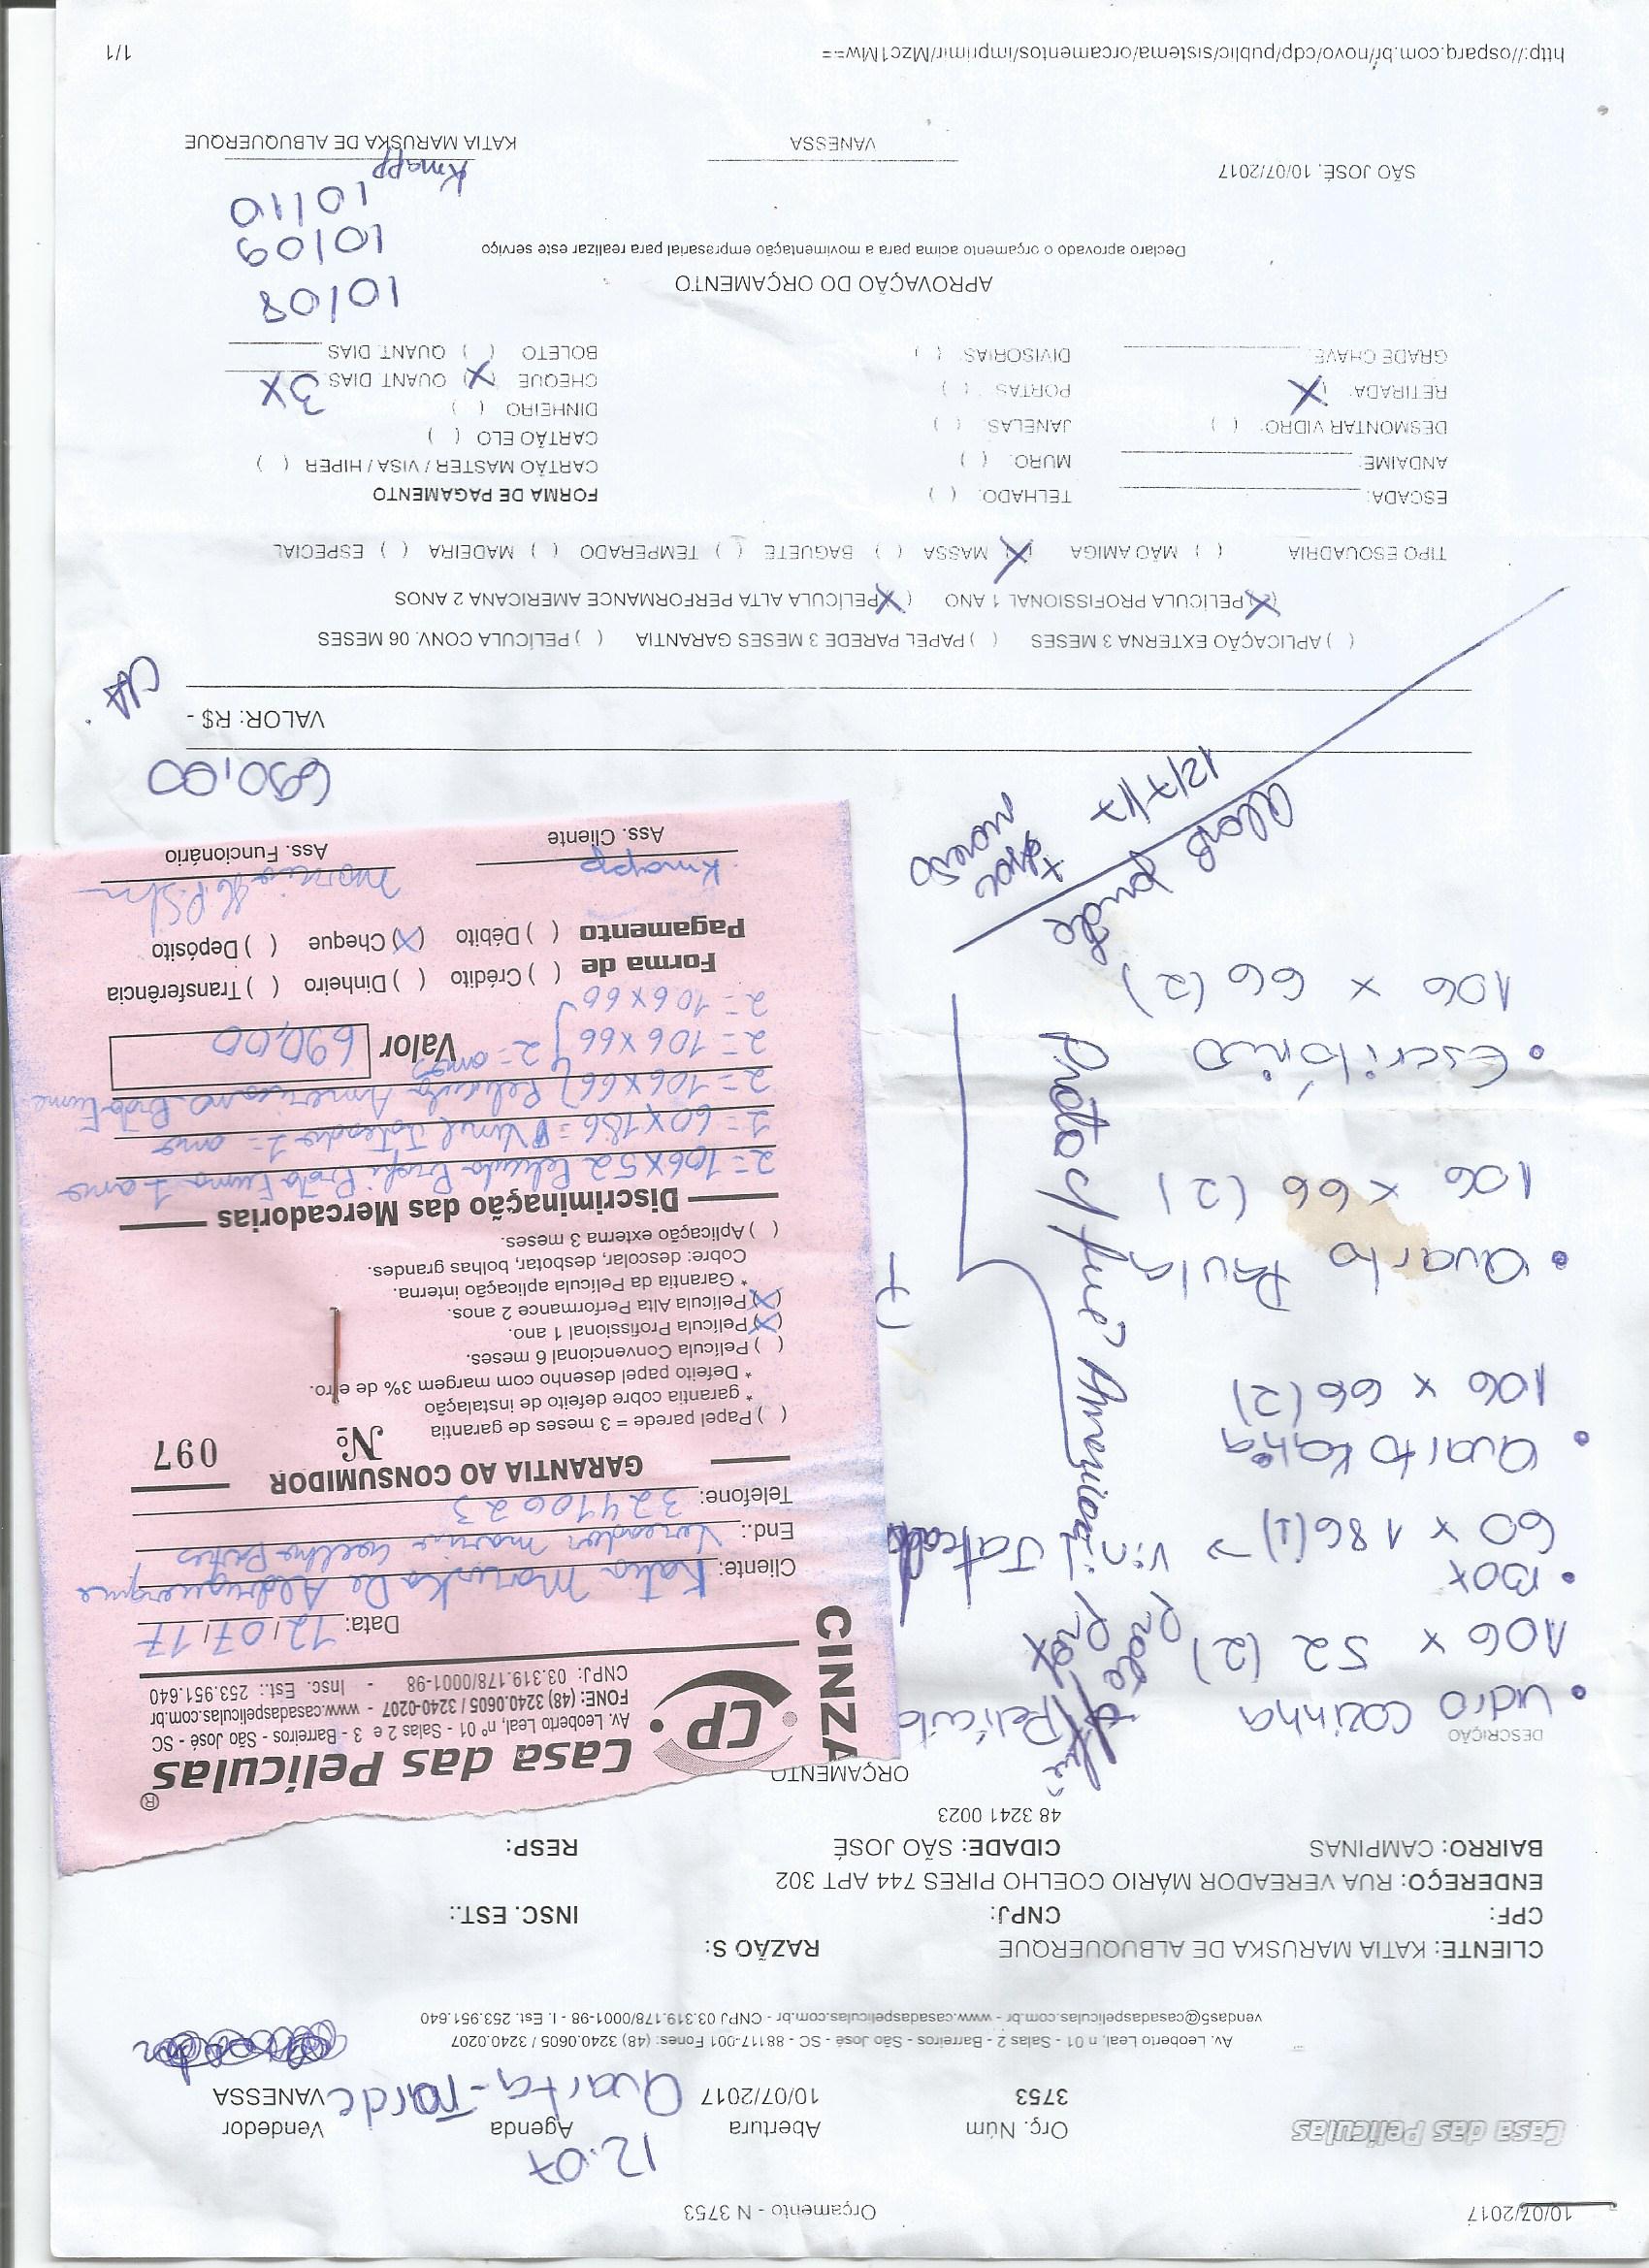 10/07/2017
Orçamento - N 3753
Casa das Películas
Orç. Núm
Abertura
Agenda
Vendedor
12.07
3753
10/07/2017
Quarta - Tarde
VANESSA
Av. Leoberto Leal, n 01 - Salas 2 - Barreiros - São José - SC - 88117-001 Fones: (48) 3240.0605 / 3240.0207
vendas5@casadaspeliculas.com.br - www.casadaspeliculas.com.br - CNPJ 03.319.178/0001-98 - I. Est. 253.951.640
CLIENTE: KATIA MARUSKA DE ALBUQUERQUE
RAZÃO S:
CPF:
CNPJ:
INSC. EST.:
ENDEREÇO: RUA VEREADOR MÁRIO COELHO PIRES 744 APT 302
BAIRRO: CAMPINAS
CIDADE: SÃO JOSÉ
RESP:
48 3241 0023
ORÇAMENTO
DESCRIÇÃO
• Vidro cozinha
106 x 52 (2)
Película
• Box
60 x 186 (1) → Vinil Jateado
• Quarto Katia
106 x 66 (2)
• Quarto Paula
106 x 66 (2)
• Escritório
106 x 66 (2)
Prata Americana
12/7/17
690,00
VALOR: R$ -
( ) APLICAÇÃO EXTERNA 3 MESES ( ) PAPEL PAREDE 3 MESES GARANTIA ( ) PELÍCULA CONV. 06 MESES
(X) PELÍCULA PROFISSIONAL 1 ANO (X) PELÍCULA ALTA PERFORMANCE AMERICANA 2 ANOS
TIPO ESQUADRIA ( ) MÃO AMIGA (X) MASSA ( ) BAGUETE ( ) TEMPERADO ( ) MADEIRA ( ) ESPECIAL
ESCADA:
TELHADO: ( )
FORMA DE PAGAMENTO
ANDAIME:
MURO: ( )
CARTÃO MASTER / VISA / HIPER ( )
DESMONTAR VIDRO: ( )
JANELAS: ( )
CARTÃO ELO ( )
DINHEIRO ( )
RETIRADA: (X
PORTAS: ( )
CHEQUE (X) QUANT. DIAS 3X
GRADE CHAVE:
DIVISORIAS: ( )
BOLETO ( ) QUANT. DIAS
10/08
10/09
10/10
APROVAÇÃO DO ORÇAMENTO
Declaro aprovado o orçamento acima para a movimentação empresarial para realizar este serviço
SÃO JOSÉ, 10/07/2017
VANESSA
Kmapp
KATIA MARUSKA DE ALBUQUERQUE
http://osparq.com.br/novo/cdp/public/sistema/orcamentos/imprimir/Mzc1Mw==
1/1
CINZA
CP
Casa das Películas ®
Av. Leoberto Leal, nº 01 - Salas 2 e 3 - Barreiros - São José - SC
FONE: (48) 3240.0605 / 3240-0207 - www.casadaspeliculas.com.br
CNPJ: 03.319.178/0001-98 - Insc. Est.: 253.951.640
Data: 12/07/17
Cliente: Katia Maruska De Albuquerque
End.: Vereador Mario Coelho Pires
Telefone: 32410023
GARANTIA AO CONSUMIDOR
Nº 097
( ) Papel parede = 3 meses de garantia
* garantia cobre defeito de instalação
* Defeito papel desenho com margem 3% de erro.
( ) Película Convencional 6 meses.
(X) Película Profissional 1 ano.
(X) Película Alta Performance 2 anos.
* Garantia da Película aplicação interna.
Cobre: descolar, desbotar, bolhas grandes.
( ) Aplicação externa 3 meses.
Discriminação das Mercadorias
2 = 106 x 52 Película Profi Prata Fume 1 ano
1 = 60 x 186 = Vinil Jateado 1 = ano
2 = 106 x 66 Película Americana Prata Fume
2 = 106 x 66 2 = anos
2 = 106 x 66
Valor 690,00
Forma de Pagamento
( ) Crédito ( ) Dinheiro ( ) Transferência
( ) Débito (X) Cheque ( ) Depósito
Kmapp
Ass. Cliente
Ass. Funcionário